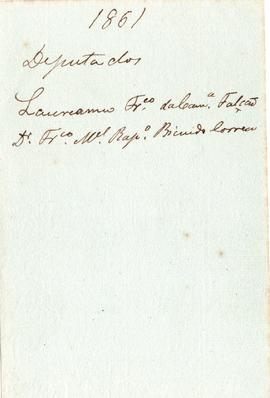 1861
Deputados
Laureanno Fr.co da Cam.a Falcão
Dr Fr.co M.el Rap.o Bicudo Corrêa